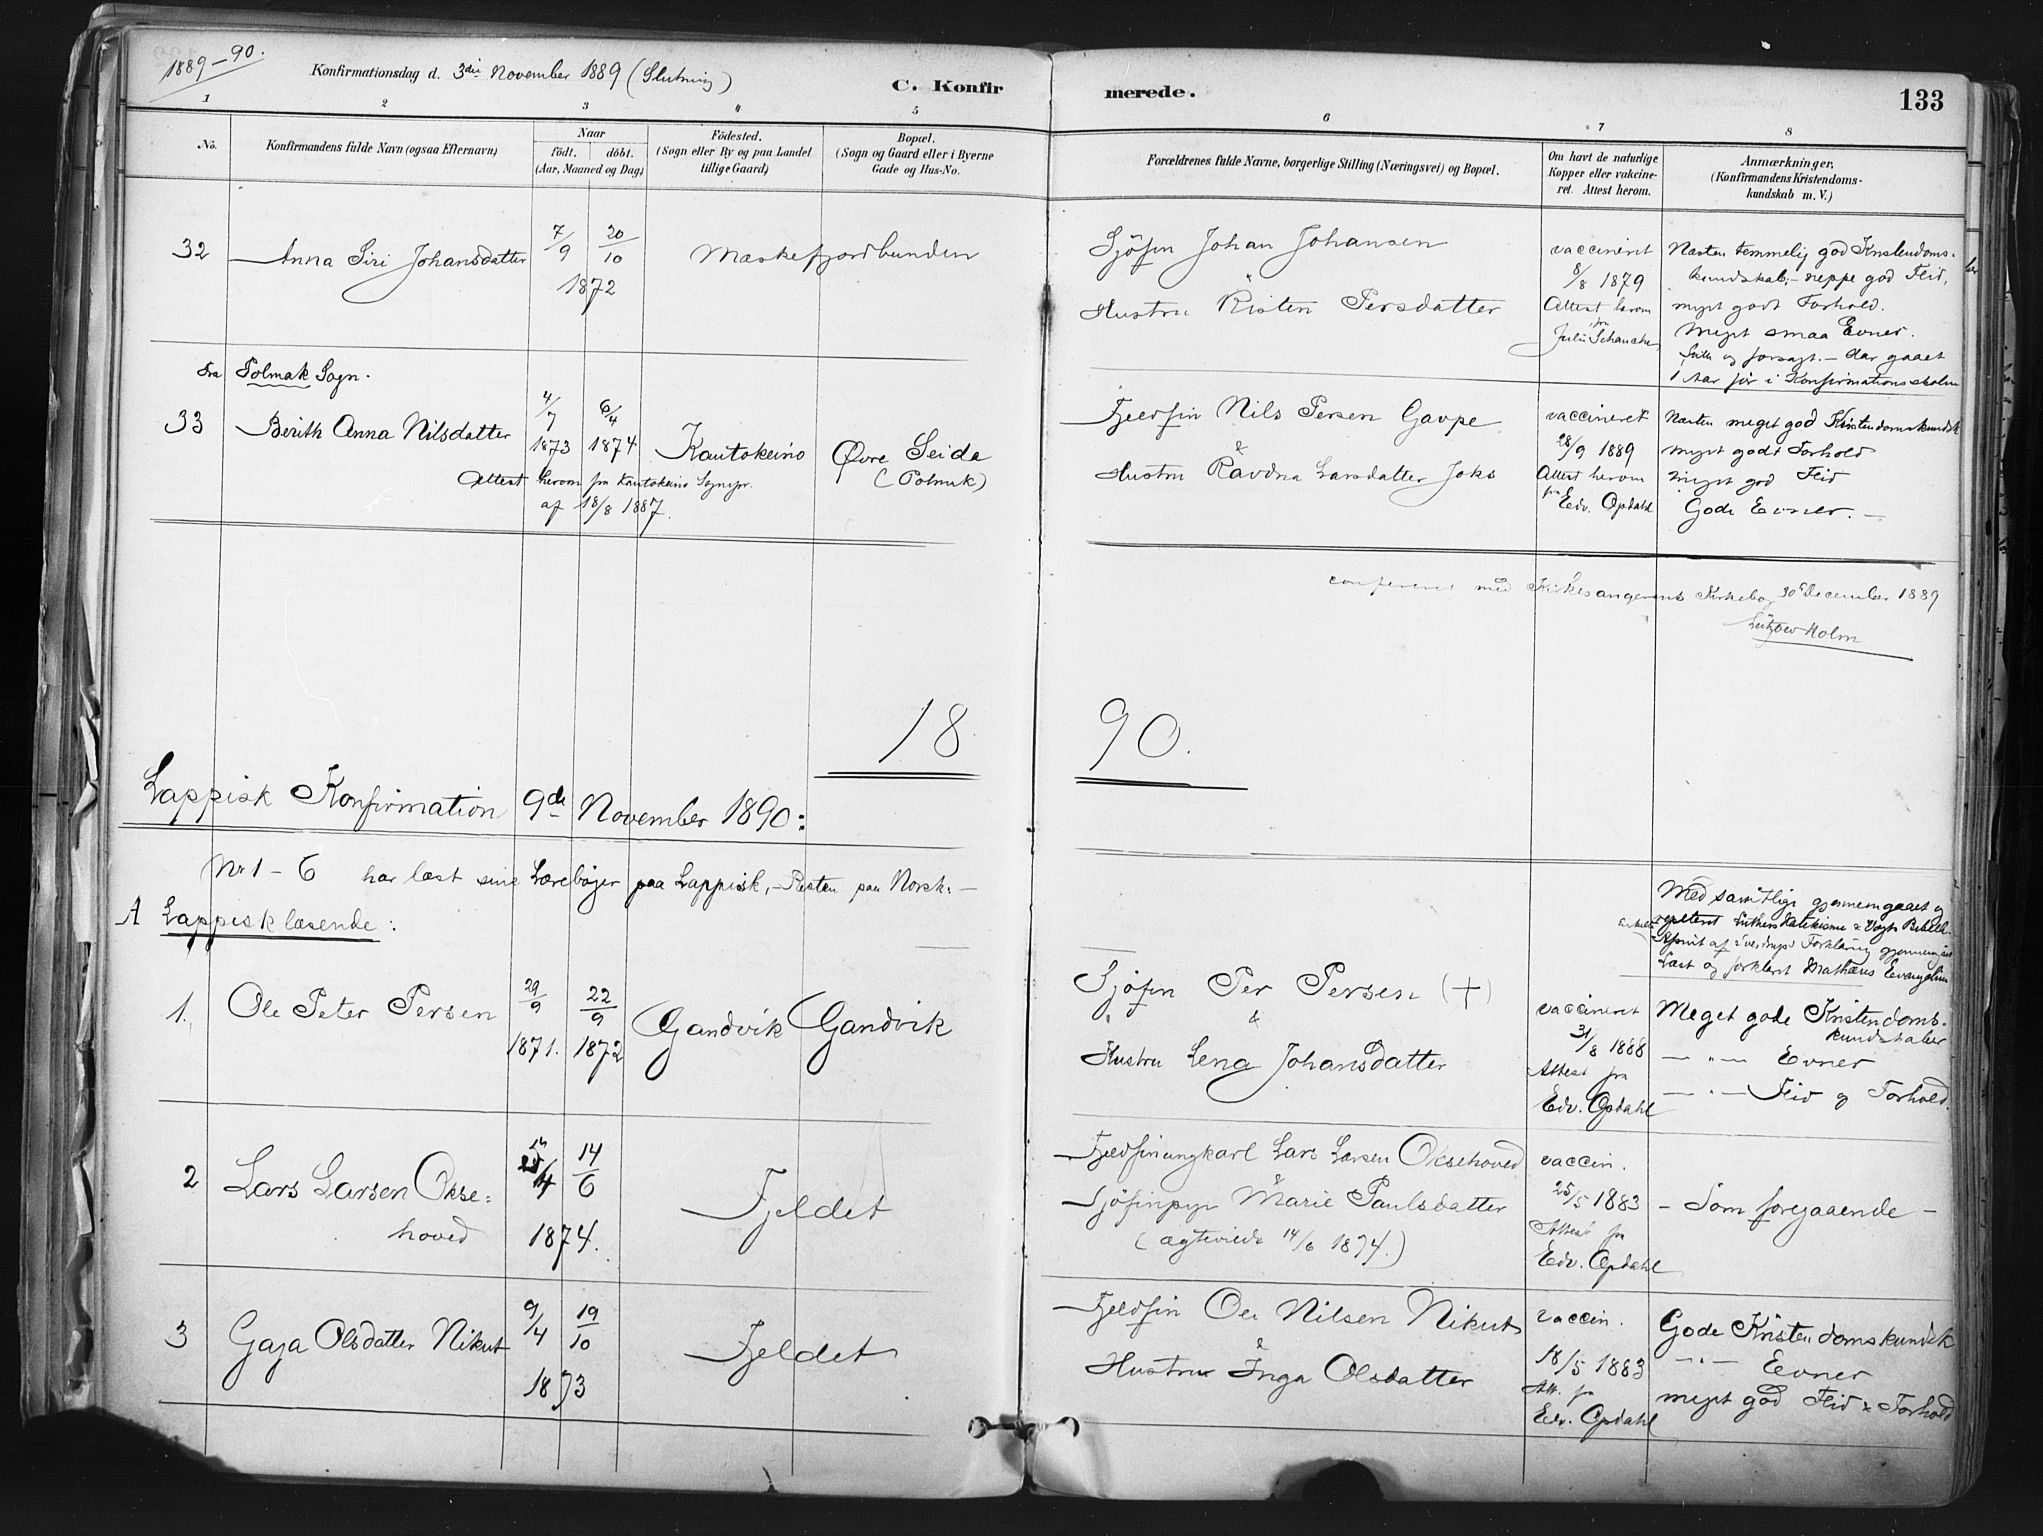 1889-90.
Konfirmationsdag d. 3die November 1889 (Slutning)
C. Konfirmerede.
133
1 2 3 4 5 6 7 8
No.
Konfirmandens fulde Navn (ogsaa Efternavn)
Naar
födt. döbt.
(Aar, Maaned og Dag)
Födested.
(Sogn eller By og paa Landet
tillige Gaard)
Bopæl.
(Sogn og Gaard eller i Byerne
Gade og Hus-No.
Forældrenes fulde Navne, borgerlige Stilling (Næringsvei) og Bopæl.
Om havt de naturlige
Kopper eller vakcine-
ret. Attest herom.
Anmærkninger.
(Konfirmandens Kristendoms-
kundskab m. V.)
32 Anna Siri Johansdatter 7/9 20/10 1872
Mæskefjordbunden
Sjöfin Johan Johansen
&
Hustru Kisten Persdatter
vaccineret
8/8 1879
Attest herom
fra
Julii Schanche
Næsten temmelig god Kristendoms-
kundskab; - neppe god Flid,
meget godt Forhold.
Meget smaa Evner.
og forsagt. - Har gaaet
1 Aar før i Konfirmationsskolen
Fra Polmak Sogn.
33 Berith Anna Nilsdatter 4/7 1873 6/4 1874
Kautokeino
Øvre Seida
(Polmak)
Attest herom fra Kautokeino Sognepr.
af 18/8 1887.
Fjeldfin Nils Persen Gavpe
&
Hustru Ravdna Larsdatter Joks
vaccineret
28/9 1889
Attest herom
fra
Edv. Opdahl
Næsten meget god Kristendomskundsk
meget godt Forhold
meget god Flid
Gode Evner. -
confereret med Kirkesangerens Kirkebog 30te December 1889
Lützow Holm
1890.
Lappisk Konfirmation 9de November 1890:
Nr 1 - 6 har læst sine Lærebøger paa Lappisk, - Resten paa Norsk. -
A Lappisklæsende:
Med samtlige gjennemgaaet og
repeteret Luthers Katekisme & Vogts Bibelh.
af Sverdrups Forklaring
Læst og forklaret Mathæus Evangelium
1. Ole Peter Persen 29/9 1871. 22/9 1872
Gandvik Gandvik
Sjöfin Per Persen (+)
&
Hustru Lena Johansdatter
vaccineret
31/8 1888
Attest fra
Edv. Opdahl
Meget gode Kristendoms-
kundskaber
- " - Evner
- " - Flid og Forhold.
2 Lars Larsen Okse-
hoved
14/6
1874.
Fjeldet
Fjeldfinungkarl Lars Larsen Oksehoved
&
Sjöfinpige Marie Paulsdatter
(ægteviede 14/6 1874.)
vaccin.
25/5 1883
Attest fra
Edv. Opdahl
- Som foregaaende -
3 Gaja Olsdatter Nikut 9/4 19/10
1873
Fjeldet
Fjeldfin Ole Nilsen Nikut
&
Hustru Inga Olsdatter
vaccin.
18/5 1883
Att. fra
Edv. Opdahl
Gode Kristendomskundsk
- " - Evner
meget god Flid & Forhold